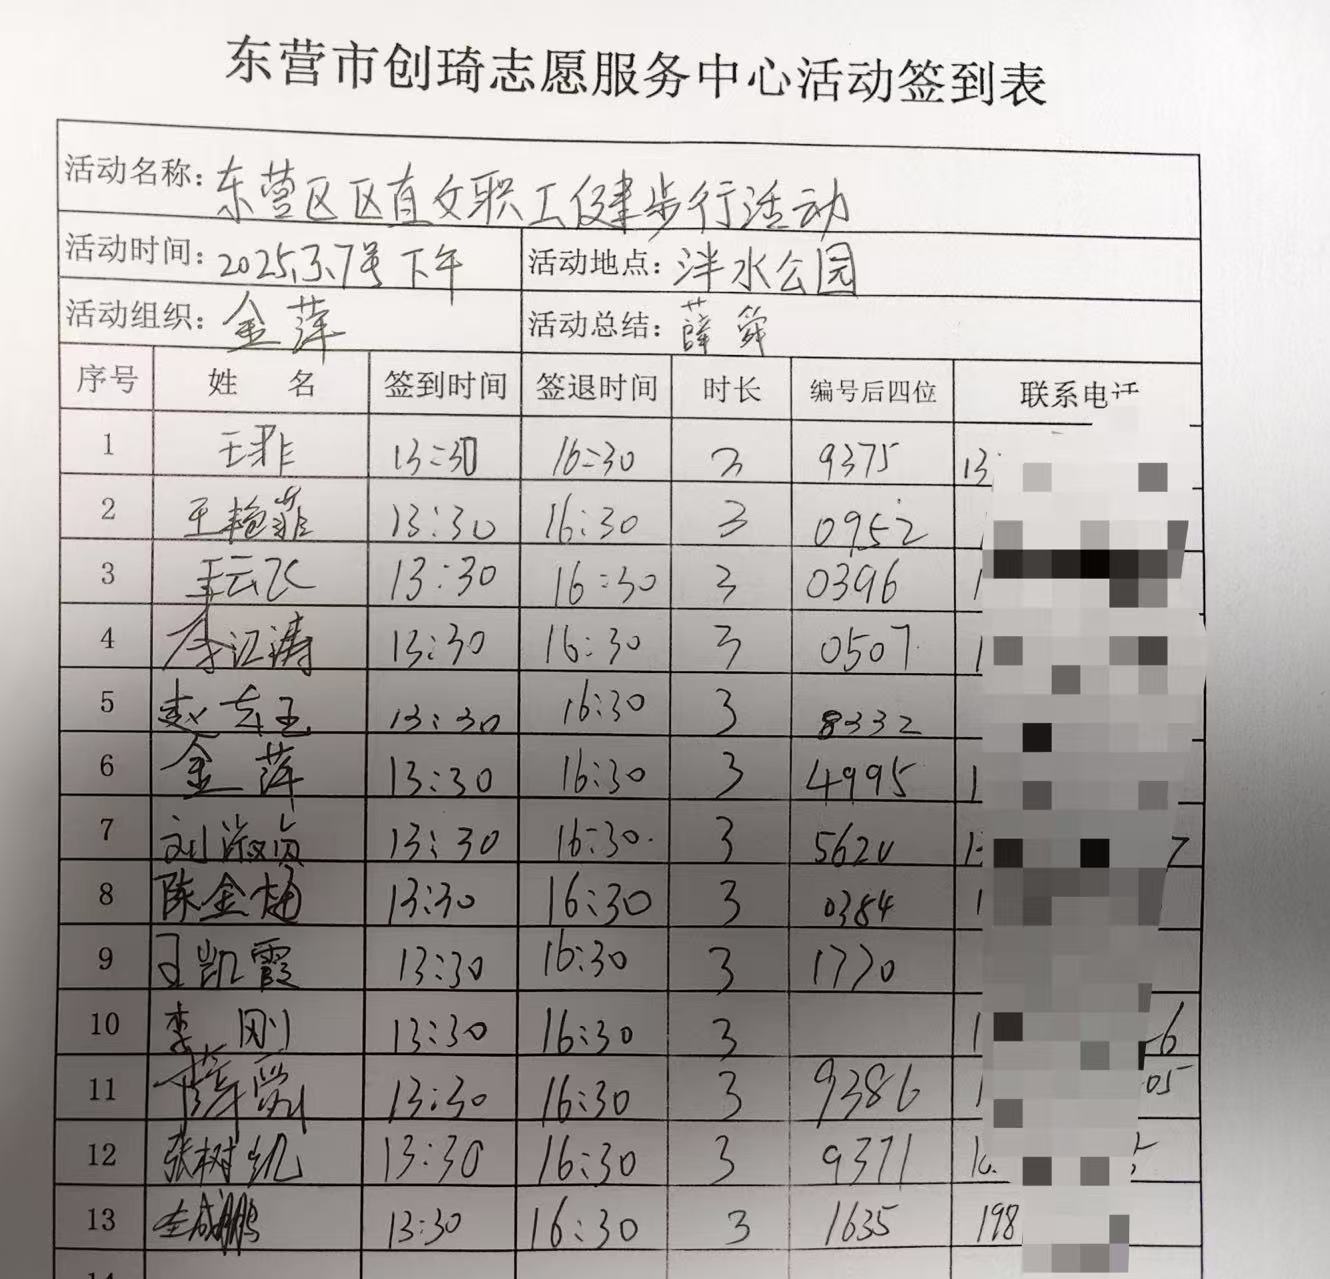 东营市创琦志愿服务中心活动签到表
活动名称：东营区区直女职工健步行活动
活动时间：2025.3.7号下午 活动地点：泮水公园
活动组织：金萍 活动总结：薛舜
序号 姓名 签到时间 签退时间 时长 编号后四位 联系电话
1 王菲 13:30 16:30 3 9375 13
2 王艳菲 13:30 16:30 3 0952 1
3 王云飞 13:30 16:30 3 0396 1
4 李江涛 13:30 16:30 3 0507 1
5 赵志玉 13:30 16:30 3 8332
6 金萍 13:30 16:30 3 4995 1
7 刘淑贞 13:30 16:30 3 5620 1 7
8 陈金梅 13:30 16:30 3 0384 1
9 王凯霞 13:30 16:30 3 1770
10 李刚 13:30 16:30 3 1 6
11 薛舜 13:30 16:30 3 9386 1 05
12 张树 13:30 16:30 3 9371 1
13 鹏 13:30 16:30 3 1635 198